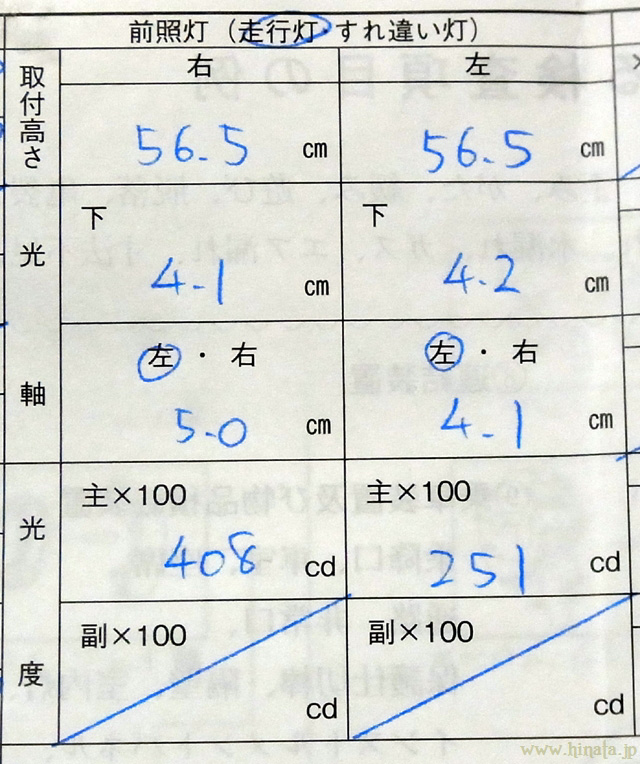 前照灯（走行灯・すれ違い灯）
右 左
取付高さ 56.5 cm 56.5 cm
下 下
光 4.1 cm 4.2 cm
左・右 左・右
軸 5.0 cm 4.1 cm
主×100 主×100
光 408 cd 251 cd
副×100 副×100
度 cd cd
www.hinata.jp